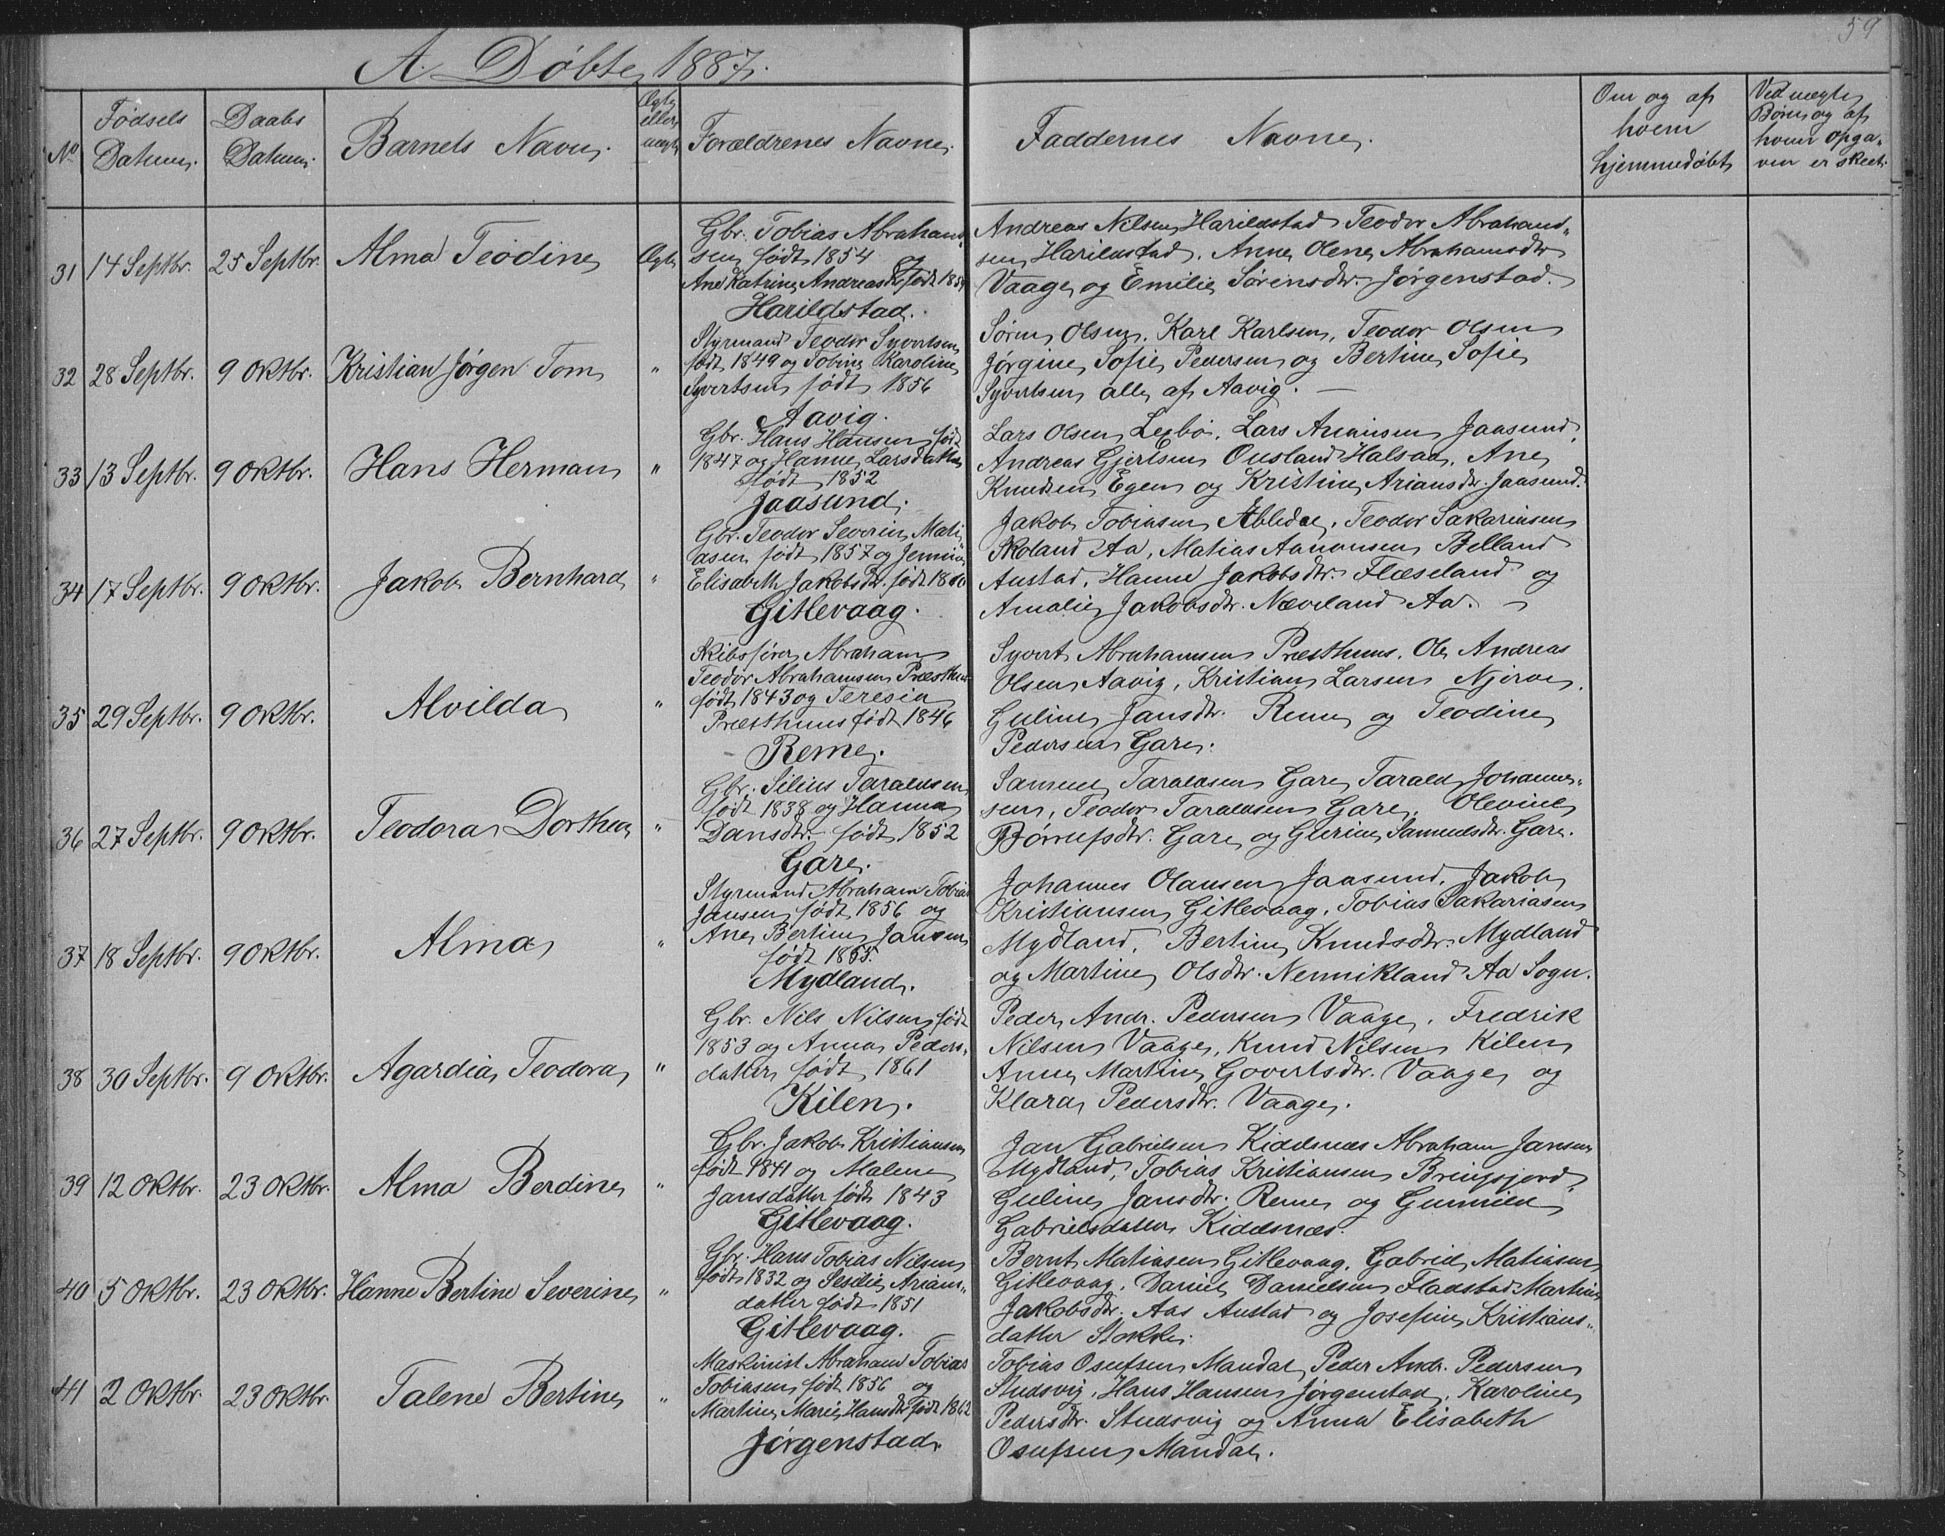 59
A. Døbte 1887.
No
Fødsels Datum.
Daabs Datum.
Barnets Navn.
Ægte eller uægte
Forældrenes Navne.
Faddernes Navne.
Om og af hvem hjemmedøbt
Ved uægte Børn og af hvem opga-
ven er skeet.
31 14 Septbr. 25 Septbr. Alma Teodine Ægte
Gbr. Tobias Abraham-
sen født 1854 og
Ane Katrine Andreasdtr født
Harildstad.
Andreas Nilsen Harildstad Teodor Abraham-
sen Harildstad. Anne Olene Abrahamsdtr
Vaage og Emilie Sørensdtr. Jørgenstad.
32 28 Septbr. 9 Oktbr. Kristian Jørgen Tom "
Styrmand Teodor Syvertsen
født 1849 og Tobine Karoline
Syvertsen født 1856
Aavig.
Søren Olsen, Karl Karlsen, Teodor Olsen
Jørgine Sofie Pedersen og Bertine Sofie
Syvertsen alle af Aavig. —
33 13 Septbr. 9 Oktbr. Hans Herman "
Gbr. Hans Hansen født
1847 og Hanne Larsdatter
født 1852
Jaasund.
Lars Olsen Lexbø, Lars Ariansen Jaasund,
Andreas Gjertsen Ousland Halsaa, Ane
Knudsen Egen og Kristine Ariansdtr. Jaasund.
34 17 Septbr. 9 Oktbr. Jakob Bernhard "
Gbr. Teodor Severin Mati-
asen født 1857 og
Elisabeth Jakobsdtr. født 1860
Gitlevaag.
Jakob Tobiasen Teodor Sakariasen
Skoland Aa, Matias Aanonsen Belland
Austad, Hanne Jakobsdtr. Flæseland og
Amalie Jakobsdtr. Næveland Aa. —
35 29 Septbr. 9 Oktbr. Alvilda "
Skibsfører Abraham
Teodor Abrahamsen Præsthus
født 1843 og Teresia
Præsthus født 1846
Reme.
Syvert Abrahamsen Præsthus, Ole Andreas
Olsen Aavig, Kristian Larsen Njerve,
Guline Jansdtr. Reme og Teodine
Pedersen Gare.
36 27 Septbr. 9 Oktbr. Teodora Dorthea "
Gbr. Silius Taraldsen
født 1838 og Hanna
Dansdtr. født 1852
Gare.
Samuel Taraldsen Gare Tarald Johannes-
sen, Teodor Taraldsen Gare, Olevine
Børrufsdtr. Gare og Gurine Samuelsdtr. Gare.
37 18 Septbr. 9 Oktbr. Alma "
Styrmand Abraham Tobias
Jansen født 1856 og
Ane Bertine Jansen
født 1865
Mydland.
Johannes Olausen Jaasund, Jakob
Kristiansen Gitlevaag, Tobias Sakariasen
Mydland, Bertine Knudsdtr. Mydland
og Martine Olsdtr. Nennikland Aa Sogn.
38 30 Septbr. 9 Oktbr. Agardia Teodora "
Gbr. Nils Nilsen født
1853 og Anna Peders-
datter født 1861
Kilen.
Peder Andr. Pedersen Vaage, Fredrik
Nilsen Vaage, Knud Nilsen Kilen
Anne Martine Govertsdtr. Vaage og
Klara Pedersdtr. Vaage.
39 12 Oktbr. 23 Oktbr. Alma Berdine "
Gbr. Jakob Kristiansen
født 1841 og Malene
Jansdatter født 1843
Gitlevaag.
Jan Gabrielsen Kiddsnæs Abraham Jansen
Mydland, Tobias Kristiansen Bringsjord,
Guline Jansdtr. Reme og Gunnild
Gabrielsdatter Kiddsnæs.
40 5 Oktbr. 23 Oktbr. Hanne Bertine Severine "
Gbr. Hans Tobias Nilsen
født 1832 og Arians-
datter født 1851
Gitlevaag.
Bernt Matiasen Gitlevaag, Gabriel Matiasen
Gitlevaag, Daniel Danielsen Fladstad Martine
Jakobsdtr. Aas Austad og Josefine Kristians-
datter Stokke.
41 2 Oktbr. 23 Oktbr. Talene Bertine "
Maskinist Abraham Tobias
Tobiasen født 1856 og
Martine Marie Hansdtr født 1862
Jørgenstad.
Tobias Osufsen Mandal, Peder Andr. Pedersen
Studsvig, Hans Hansen Jørgenstad, Karoline
Pedersdtr. Studsvig og Anna Elisabeth
Osufsen Mandal.